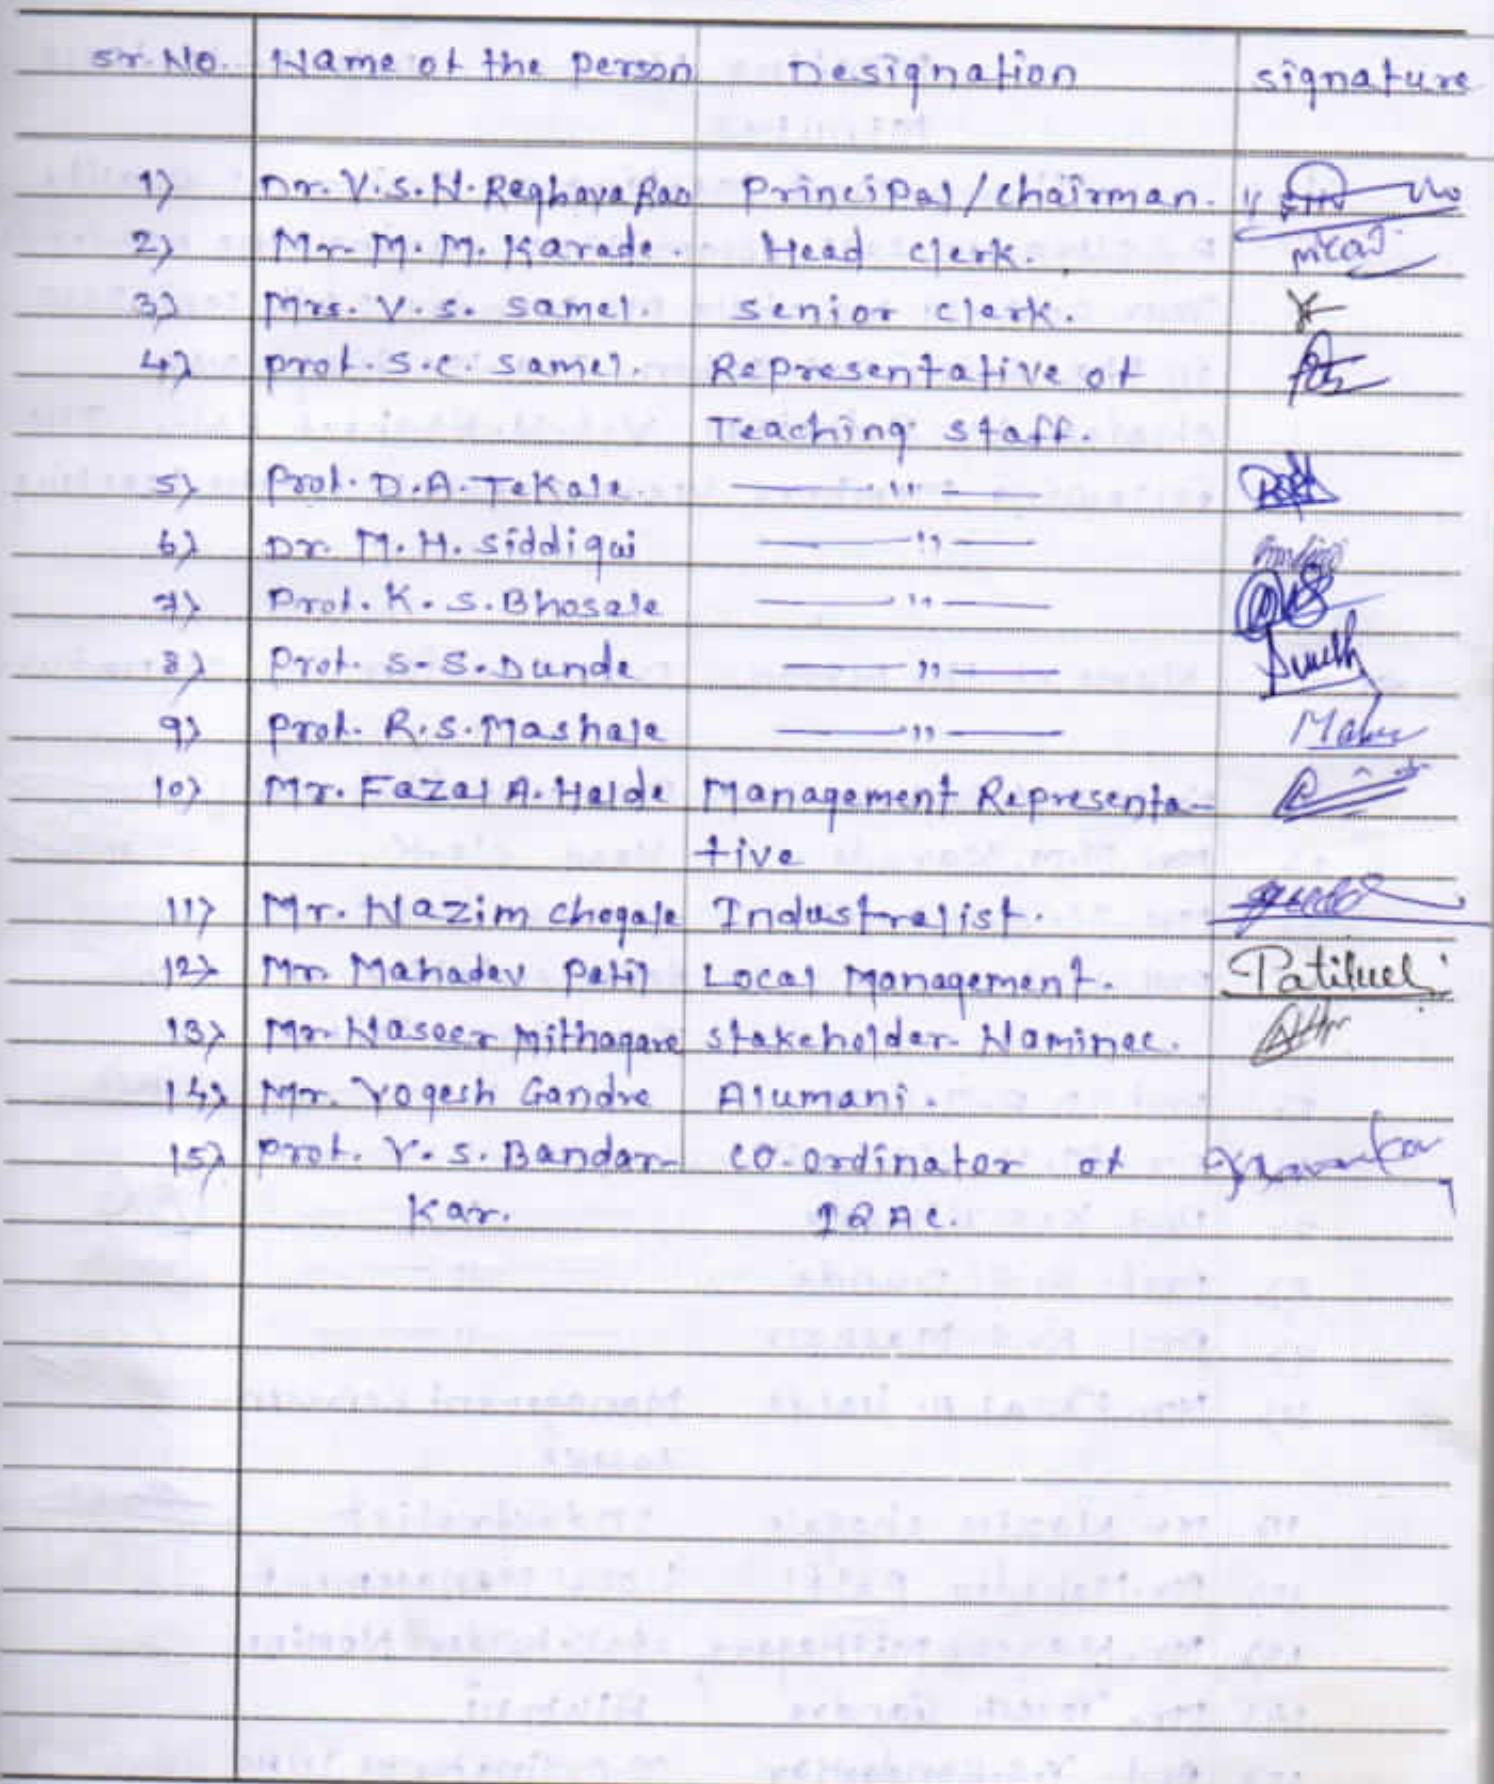 Sr. No. Name of the Person Designation Signature
1) Dr. V.S.N. Raghava Rao Principal/chairman.
2) Mr. M. M. Karade. Head clerk.
3) Mrs. V. S. Samel. Senior clerk.
4) Prof. S. C. Samel. Representative of
Teaching staff.
5) Prof. D.A. Tekale. —— ,, ——
6) Dr. M. H. Siddiqui —— ,, ——
7) Prof. K. S. Bhosale —— ,, ——
8) Prof. S. S. Dunde —— ,, ——
9) Prof. R. S. Mashale —— ,, ——
10) Mr. Fazal A. Halde Management Representa-
tive
11) Mr. Nazim Chogale Industralist.
12) Mr. Mahadev Patil Local Management.
13) Mr. Naseer Mithagare Stakeholder Nominee.
14) Mr. Yogesh Gandre Alumani.
15) Prof. Y. S. Bandar- CO-Ordinator of
kar. IQAC.